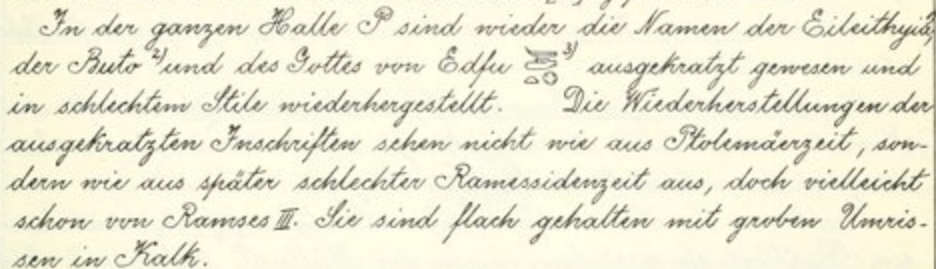 In der ganzen Halle P sind wieder die Namen der Eileithyia,
der Buto ²⁾ und des Gottes von Edfu ³⁾ ausgekratzt gewesen und
in schlechtem Stile wiederhergestellt. Die Wiederherstellungen der
ausgekratzten Inschriften sehen nicht wie aus Ptolemäerzeit, son-
dern wie aus später schlechter Ramessidenzeit aus, doch vielleicht
schon von Ramses III. Sie sind flach gehalten mit groben Umris-
sen in Kalk.